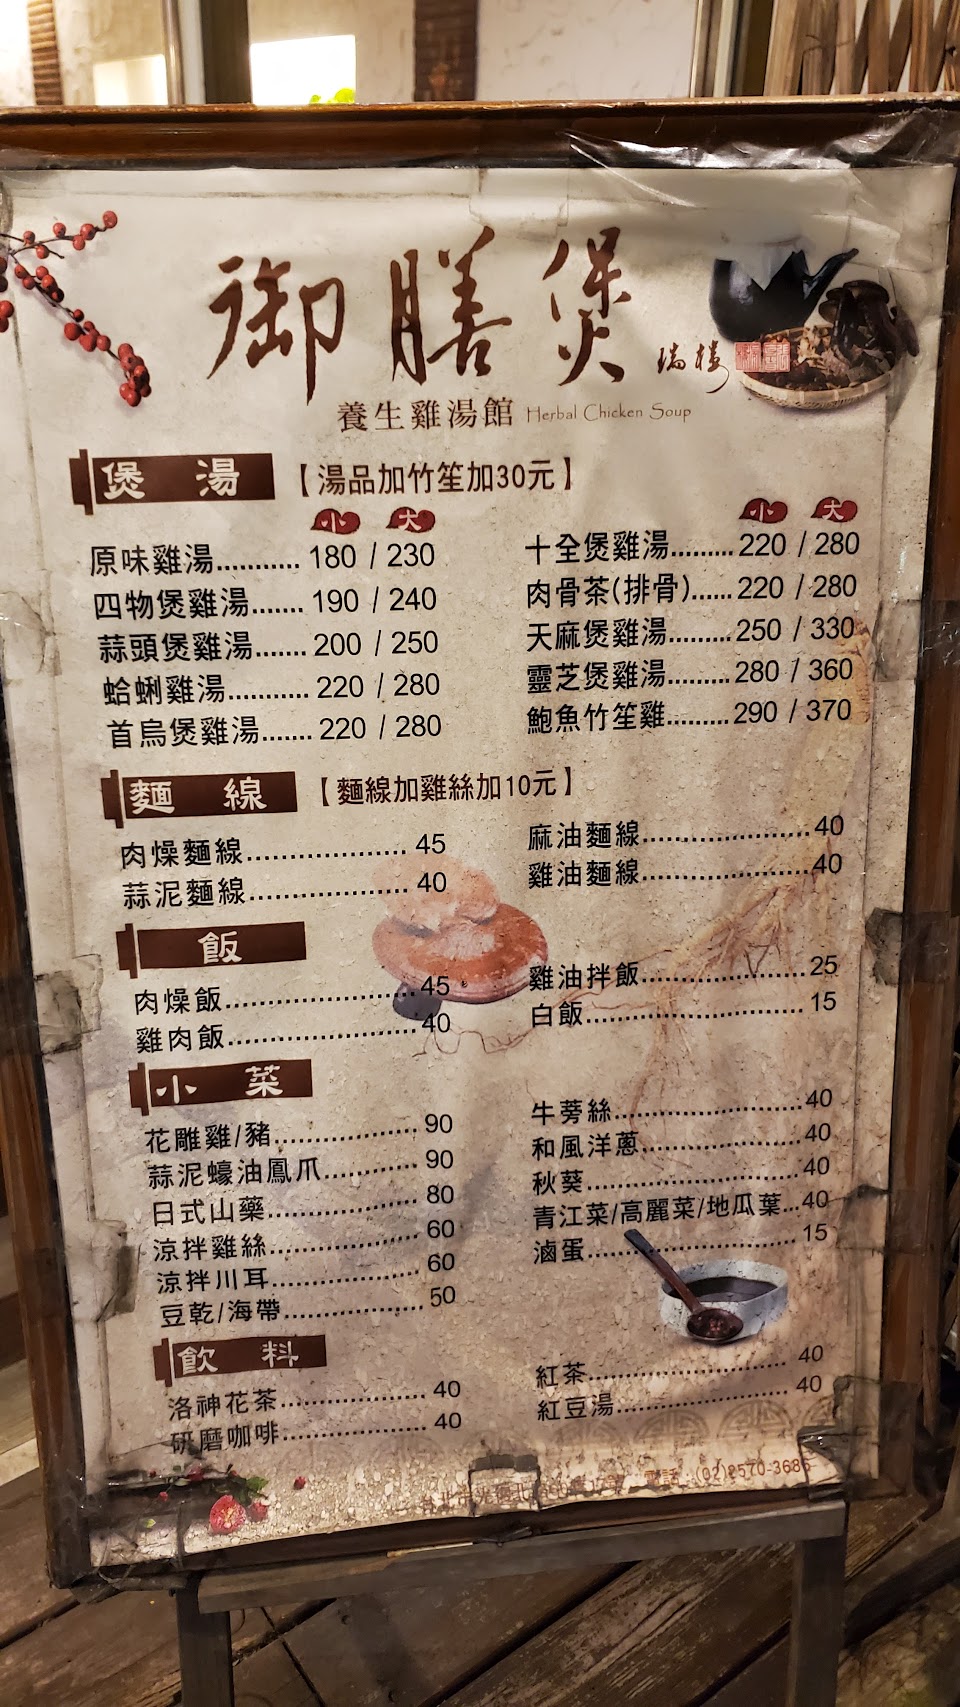 御膳煲
瑞樓
養生雞湯館 Herbal Chicken Soup
煲湯 【湯品加竹笙加30元】
小 大
原味雞湯........... 180 / 230
四物煲雞湯....... 190 / 240
蒜頭煲雞湯....... 200 / 250
蛤蜊雞湯........... 220 / 280
首烏煲雞湯....... 220 / 280
小 大
十全煲雞湯.........220 / 280
肉骨茶(排骨)......220 / 280
天麻煲雞湯.........250 / 330
靈芝煲雞湯.........280 / 360
鮑魚竹笙雞.........290 / 370
麵線 【麵線加雞絲加10元】
肉燥麵線.................... 45
蒜泥麵線.................... 40
麻油麵線.....................40
雞油麵線.....................40
飯
肉燥飯........................45
雞肉飯........................40
雞油拌飯.....................25
白飯........................... 15
小菜
花雕雞/豬.................. 90
蒜泥蠔油鳳爪............ 90
日式山藥................... 80
涼拌雞絲................... 60
涼拌川耳................... 60
豆乾/海帶.................. 50
牛蒡絲........................40
和風洋蔥.....................40
秋葵...........................40
青江菜/高麗菜/地瓜葉...40
滷蛋.......................... 15
飲料
洛神花茶................... 40
研磨咖啡................... 40
紅茶......................... 40
紅豆湯...................... 40
電話:(02)8570-3686